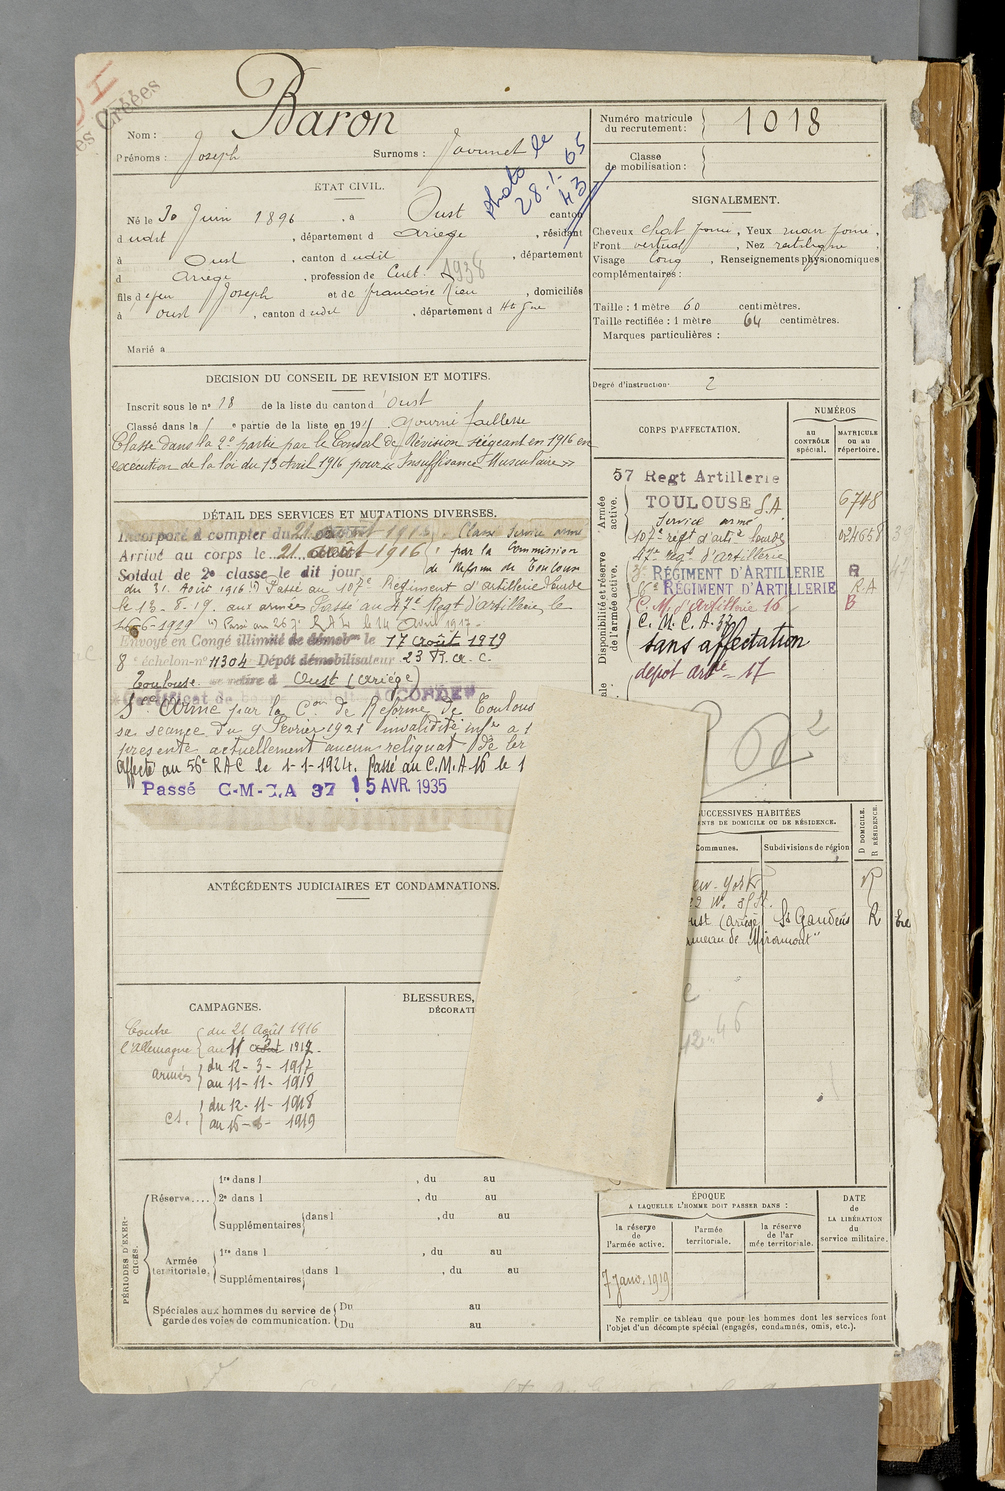 es Créées
Nom : Baron
Prénoms : Joseph Surnoms :
photo le
28.1.65
43
Numéro matricule
du recrutement : 1018
Classe
de mobilisation :
ETAT CIVIL.
Né le 30 Juin 1896, à Oust canton
d udit, département d Ariège, résidant
à Oust, canton d udit, département
d Ariege, profession de Cult. 1938
fils de feu Joseph et de françoise Rieu, domiciliés
à oust, canton d udit, département d Hte Gne
Marié à
SIGNALEMENT.
Cheveux chat foncé, Yeux marr foncé,
Front vertical, Nez rectiligne,
Visage long, Renseignements physionomiques
complémentaires :
Taille : 1 mètre 60 centimètres.
Taille rectifiée : 1 mètre 64 centimètres.
Marques particulières :
Degré d'instruction : 2
DECISION DU CONSEIL DE REVISION ET MOTIFS.
Inscrit sous le n° 18 de la liste du canton d'Oust
Classé dans la 1 e partie de la liste en 191 ajourné faiblesse
Classé dans la 2e partie par le Conseil de Révision siégeant en 1916 en
exécution de la loi du 13 Avril 1916 pour « Insuffisance Musculaire »
CORPS D'AFFECTATION.
NUMÉROS
au
CONTRÔLE
spécial.
MATRICULE
ou au
répertoire.
Armée
active.
Disponibilité et réserve
de l'armée active.
57 Regt Artillerie
TOULOUSE SA 6748
Service armé
107e regt d'artie lourde 024658
47e regt d'artillerie
RÉGIMENT D'ARTILLERIE
RÉGIMENT D'ARTILLERIE R.A
C.M. d'Artillerie 16 B
C.M.C.A. 37
sans affectation
depot artie 17
DÉTAIL DES SERVICES ET MUTATIONS DIVERSES.
Incorporé à compter du 21 août 1916 Classé Service armé
Arrivé au corps le 21 août 1916 par la Commission
Soldat de 2e classe le dit jour de Réforme de Toulouse
du 31 Août 1916. Passé au 107e Régiment d'artillerie lourde
le 13-8-19. aux armées Passé au 47e Regt d'artillerie, le
Envoyé en Congé illimité de démobon le 17 Août 1919
8e échelon n° 11304 Dépôt démobilisateur 23 R.a.c.
Toulouse se retire à Oust (Ariège)
Certificat de ACCORDÉ
Sce Armé par la Con de Réforme de Toulous
sa séance du 9 Fevrier 1921 invalidité infre à 1
présente actuellement aucun reliquat de
Affecté au 56e RAC le 1-1-1924. passé au C.M.A 16 le 1
Passé C-M-C.A 37 15 AVR. 1935
ANTÉCÉDENTS JUDICIAIRES ET CONDAMNATIONS.
SUCCESSIVES HABITÉES
ENTS DE DOMICILE OU DE RÉSIDENCE.
Communes.
Subdivisions de région
D DOMICILE.
R RÉSIDENCE.
ew-york R
ust (ariege) St Gaudens R
ameau de Miramont"
42-46
CAMPAGNES.
Contre
l'Allemagne
du 21 Août 1916
au 11 1917.
armées
du 12-3-1917
au 11-11-1918
du 12-11-1918
au 1919
BLESSURES,
DÉCORATI
PÉRIODES D'EXER-
CICES.
Réserve....
1re dans l , du au
2e dans l , du au
Supplémentaires dans l , du au
Armée
territoriale,
1re dans l , du au
Supplémentaires dans l , du au
Spéciales aux hommes du service de
garde des voies de communication.
Du au
Du au
ÉPOQUE
A LAQUELLE L'HOMME DOIT PASSER DANS :
la réserve
de
l'armée active.
l'armée
territoriale.
la réserve
de l'ar
mée territoriale.
DATE
de
LA LIBÉRATION
du
service militaire.
7 Janv. 1919
Ne remplir ce tableau que pour les hommes dont les services font
l'objet d'un décompte spécial (engagés, condamnés, omis, etc.).